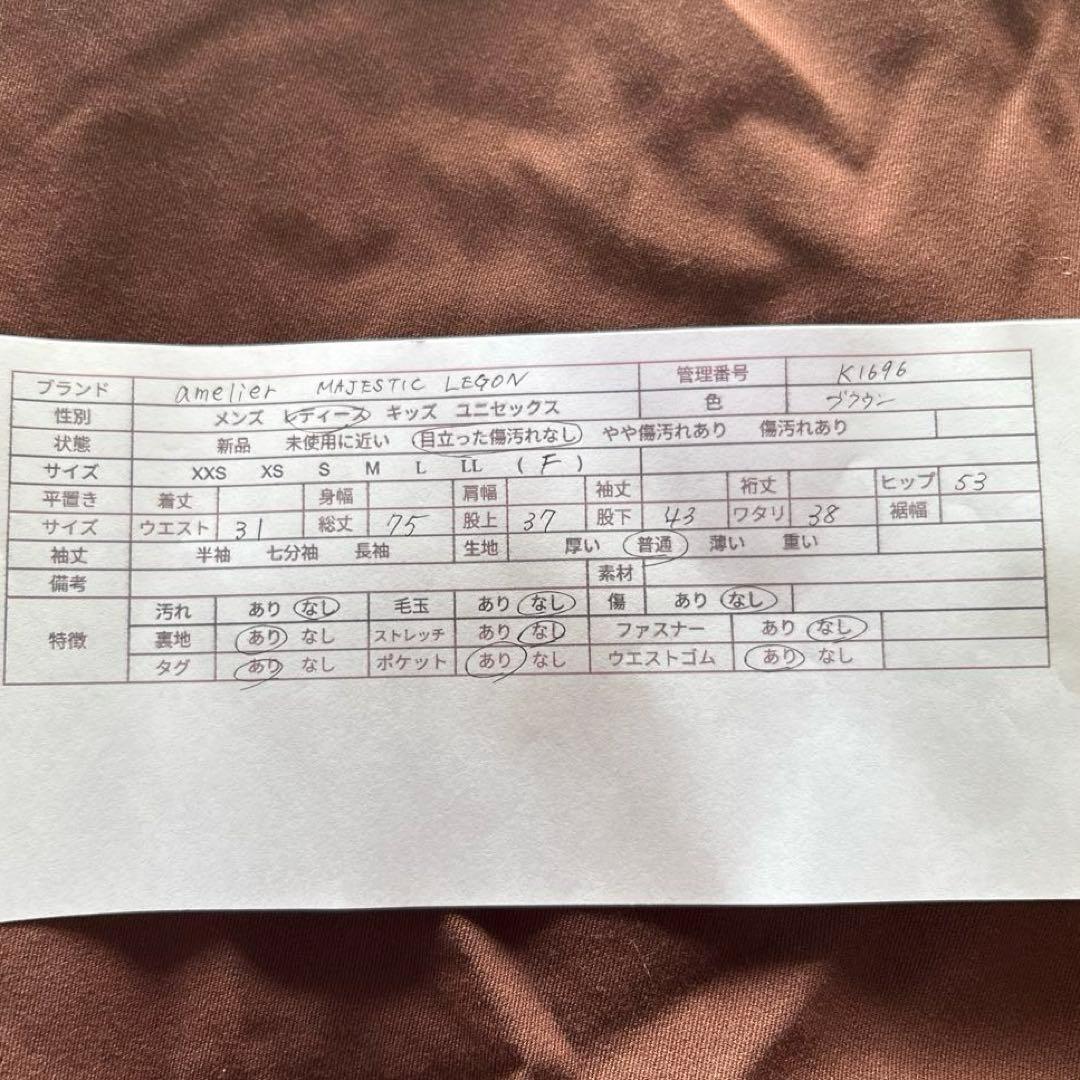 ブランド amelier MAJESTIC LEGON 管理番号 K1696
性別 メンズ レディース キッズ ユニセックス 色 ブラウン
状態 新品 未使用に近い 目立った傷汚れなし やや傷汚れあり 傷汚れあり
サイズ XXS XS S M L LL ( F )
平置き 着丈 身幅 肩幅 袖丈 裄丈 ヒップ 53
サイズ ウエスト 31 総丈 75 股上 37 股下 43 ワタリ 38 裾幅
袖丈 半袖 七分袖 長袖 生地 厚い 普通 薄い 重い
備考 素材
特徴 汚れ あり なし 毛玉 あり なし 傷 あり なし
裏地 あり なし ストレッチ あり なし ファスナー あり なし
タグ あり なし ポケット あり なし ウエストゴム あり なし